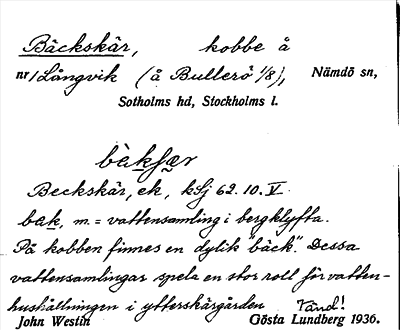 Bäckskär, kobbe å
nr 1 Långvik (å Bullerö 1/8), Nämdö sn,
Sotholms hd, Stockholms l.
bèkʃær
Beckskär, ek, kSj 62. 10. V.
bæk, m. = vattensamling i bergklyfta.
På kobben finnes en dylik "bäck". Dessa
vattensamlingar spela en stor roll för vatten-
hushållningen i ytterskärgården Vänd!
John Westin Gösta Lundberg 1936.